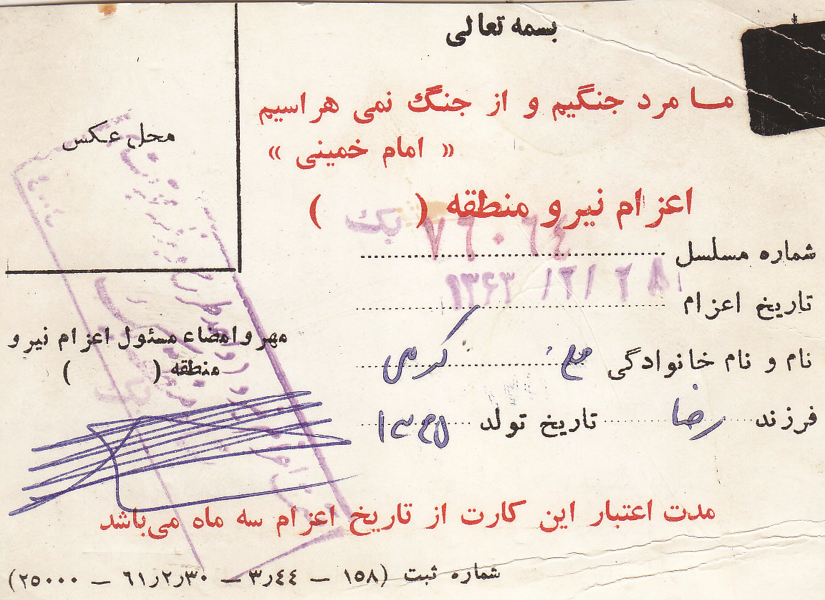 بسمه تعالی
ما مرد جنگیم و از جنگ نمی هراسیم
« امام خمینی »
محل عکس
اعزام نیرو منطقه ( )
یک
شماره مسلسل ۷۶۰۶۴
تاریخ اعزام
نام و نام خانوادگی کرمی
فرزند رضا تاریخ تولد
مهر و امضاء مسئول اعزام نیرو
منطقه ( )
مدت اعتبار این کارت از تاریخ اعزام سه ماه می‌باشد
شماره ثبت (۱۵۸ – ۳٫۴۴ – ۶۱٫۲٫۳۰ – ۲۵۰۰۰)